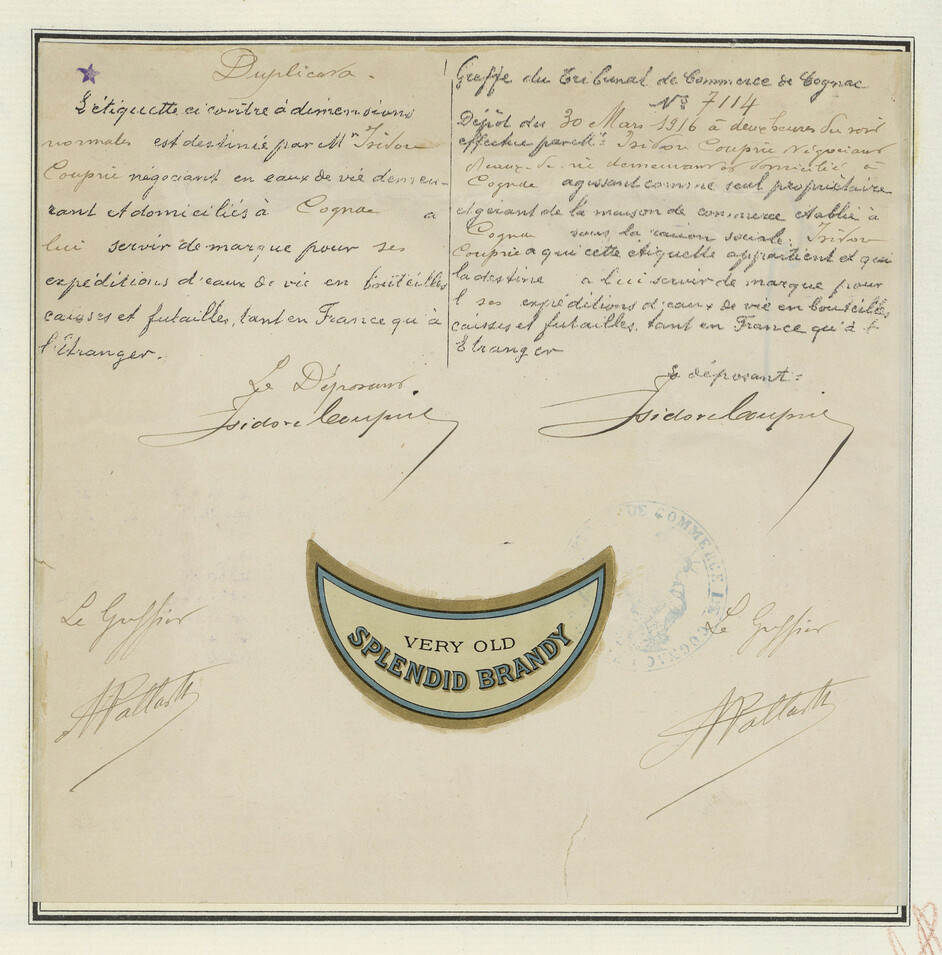 Duplicata.
L'étiquette ci contre à dimensions
normales est destinée par Mr Isidore
Couprie négociant en eaux de vie demeu-
rant et domiciliés à Cognac a
lui servir de marque pour ses
expéditions d'eaux de vie en bouteilles
caisses et futailles, tant en France qu'à
l'Etranger.
Le Déposant.
Isidore Couprie
Greffe du Tribunal de Commerce de Cognac
No 7114
Dépôt du 30 Mars 1916 à deux heures du soir
effectué par Mr: Isidore Couprie Négociant
d'eaux de vie demeurant et domicilié à
Cognac agissant comme seul propriétaire
et gérant de la maison de commerce etablie à
Cognac sous la raison sociale: Isidore
Couprie a qui cette étiquette appartient et qui
la destine a lui servir de marque pour
ses expéditions d'eaux de vie en bouteilles
caisses et futailles, tant en France qu'à l'
Etranger
Le déposant:
Isidore Couprie
DE COMMERCE DE COGNAC
VERY OLD
SPLENDID BRANDY
Le Greffier
Le Greffier